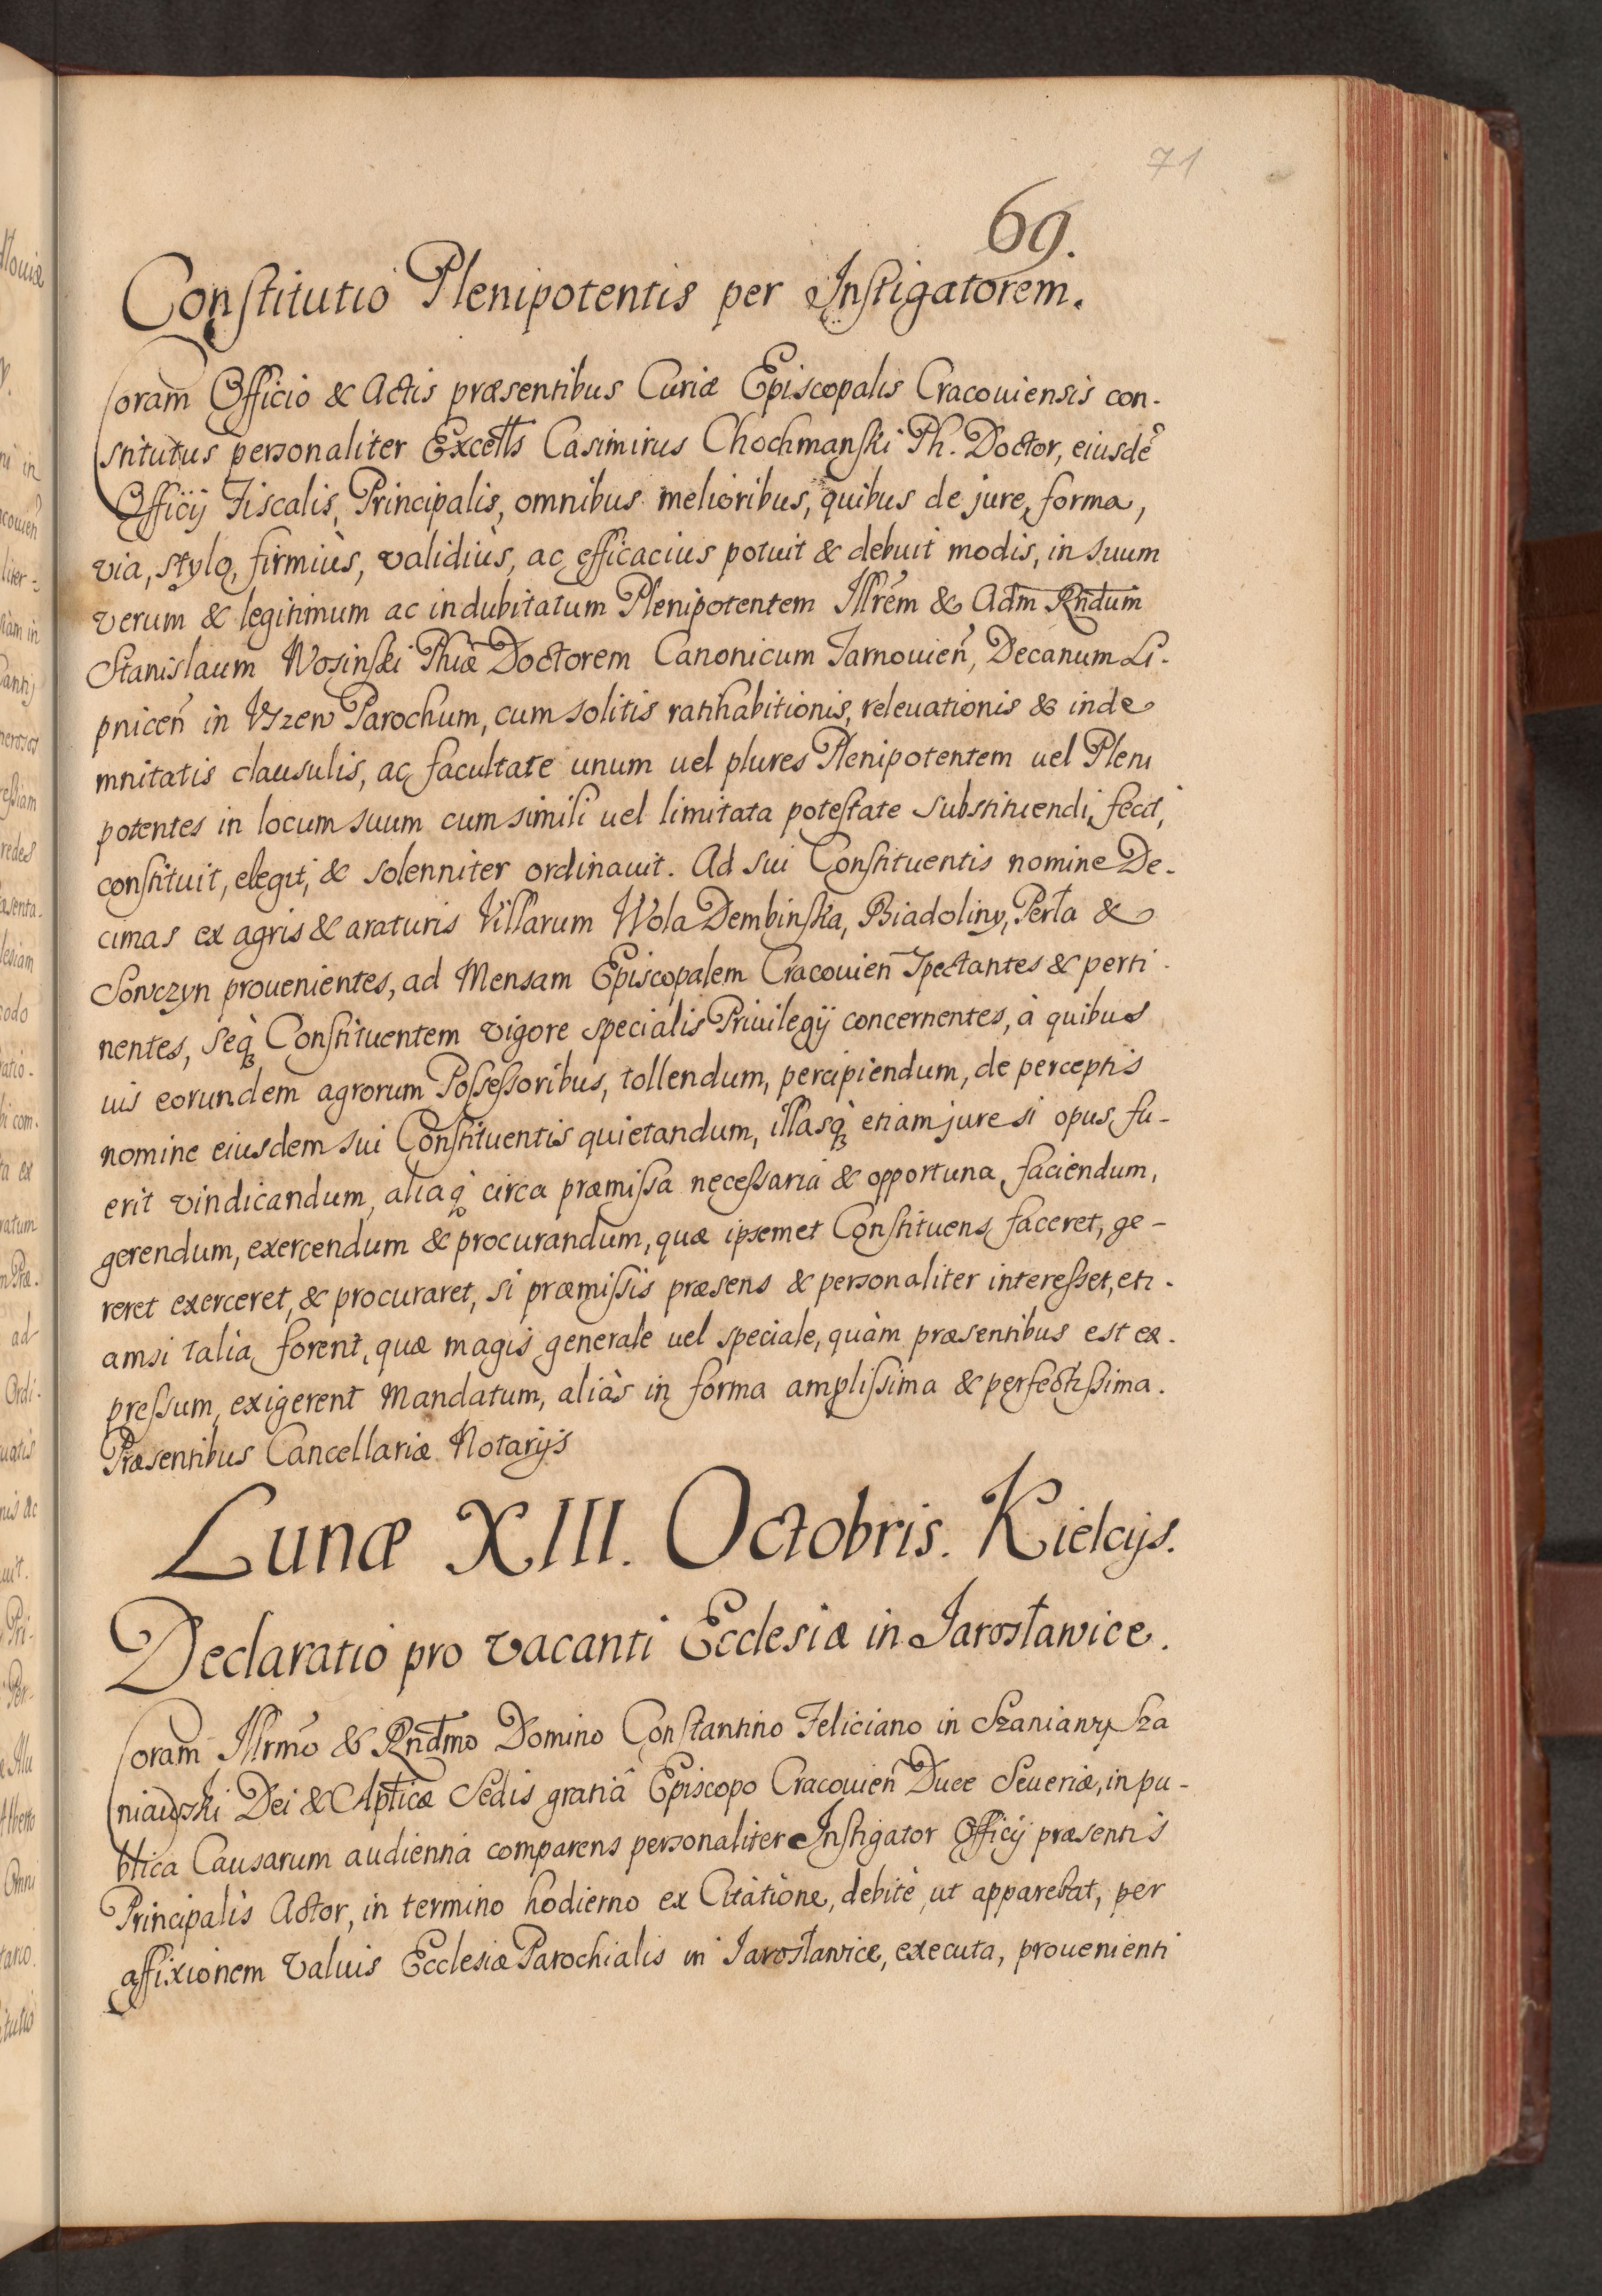 71
69.
Constitutio Plenipotentis per Instigatorem.
Coram Officio & Actis præsentibus Curiæ Episcopalis Cracouiensis con-
stitutus personaliter Excell̃s Casimirus Chochmanski Ph. Doctor, eiusdẽ
Officij Fiscalis, Principalis, omnibus melioribus, quibus de jure, forma,
via, stylo, firmiùs, validiùs, ac efficacius potuit & debuit modis, in suum
verum & legitimum ac indubitatum Plenipotentem Illrẽm & Adm̃ Rñdum
Stanislaum Wosinski Phiæ Doctorem Canonicum Tarnouieñ, Decanum Li-
pniceñ in Uszew Parochum, cum solitis ratihabitionis, releuationis & inde
mnitatis clausulis, ac facultate unum uel plures Plenipotentem uel Pleni
potentes in locum suum cum simili uel limitata potestate substituendi, fecit,
constituit, elegit, & solenniter ordinauit. Ad sui Constituentis nomine De-
cimas ex agris & araturis Villarum Wola Dembinska, Biadoliny, Perła &
Sowczyn prouenientes, ad Mensam Episcopalem Cracouieñ spectantes & perti-
nentes, seq̀ꝫ Constituentem vigore specialis Priuilegij concernentes, à quibus
uis eorundem agrorum Possessoribus, tollendum, percipiendum, de perceptis
nomine eiusdem sui Constituentis quietandum, illasq̀ꝫ etiam jure si opus fu-
erit vindicandum, aliaq̀ꝫ circa præmissa necessaria & opportuna faciendum,
gerendum, exercendum & procurandum, quæ ipsemet Constituens faceret, ge-
reret exerceret, & procuraret, si præmissis præsens & personaliter interesset, eti-
amsi talia forent, quæ magis generale uel speciale, quàm præsentibus est ex-
pressum, exigerent Mandatum, aliàs in forma amplissima & perfectissima.
Præsentibus Cancellariæ Notarijs
Lunæ XIII. Octobris. Kielcijs.
Declaratio pro vacanti Ecclesiæ in Jarosławice.
Coram Illrmõ & Rñdmo Domino Constantino Feliciano in Szaniawy Sza
niawski Dei & Aplicæ Sedis gratiâ Episcopo Cracouieñ Duce Seueriæ, in pu-
blica Causarum audientia comparens personaliter Instigator Officij præsentis
Principalis Actor, in termino hodierno ex Citatione, debitè, ut apparebat, per
affixionem Valuis Ecclesiæ Parochialis in Jarosławice, executa, prouenienti